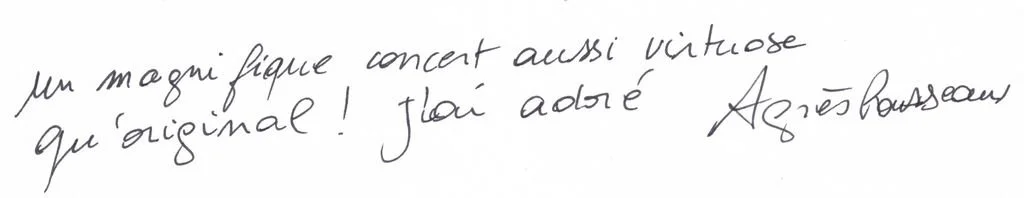 un magnifique concert aussi virtuose
qu'original ! J'ai adoré Agnès Rousseau